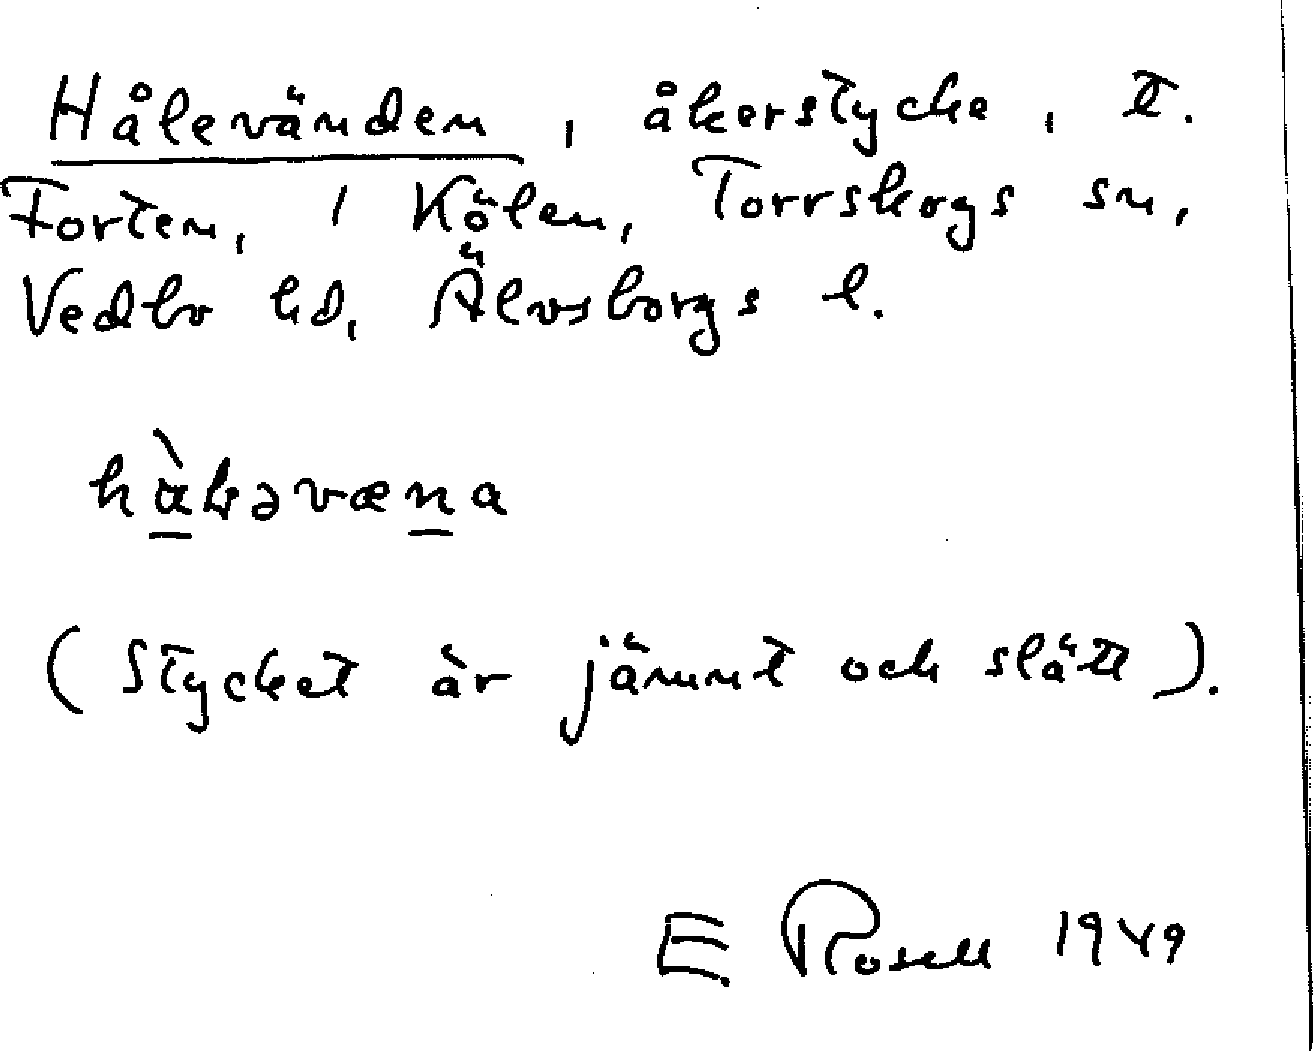 Hålevänden, åkerstycke, t.
Forten, 1 Kölen, Torrskogs sn,
Vedbo hd, Älvsborgs l.
(Stycket är jämnt och slätt).
E. Rosell 1949